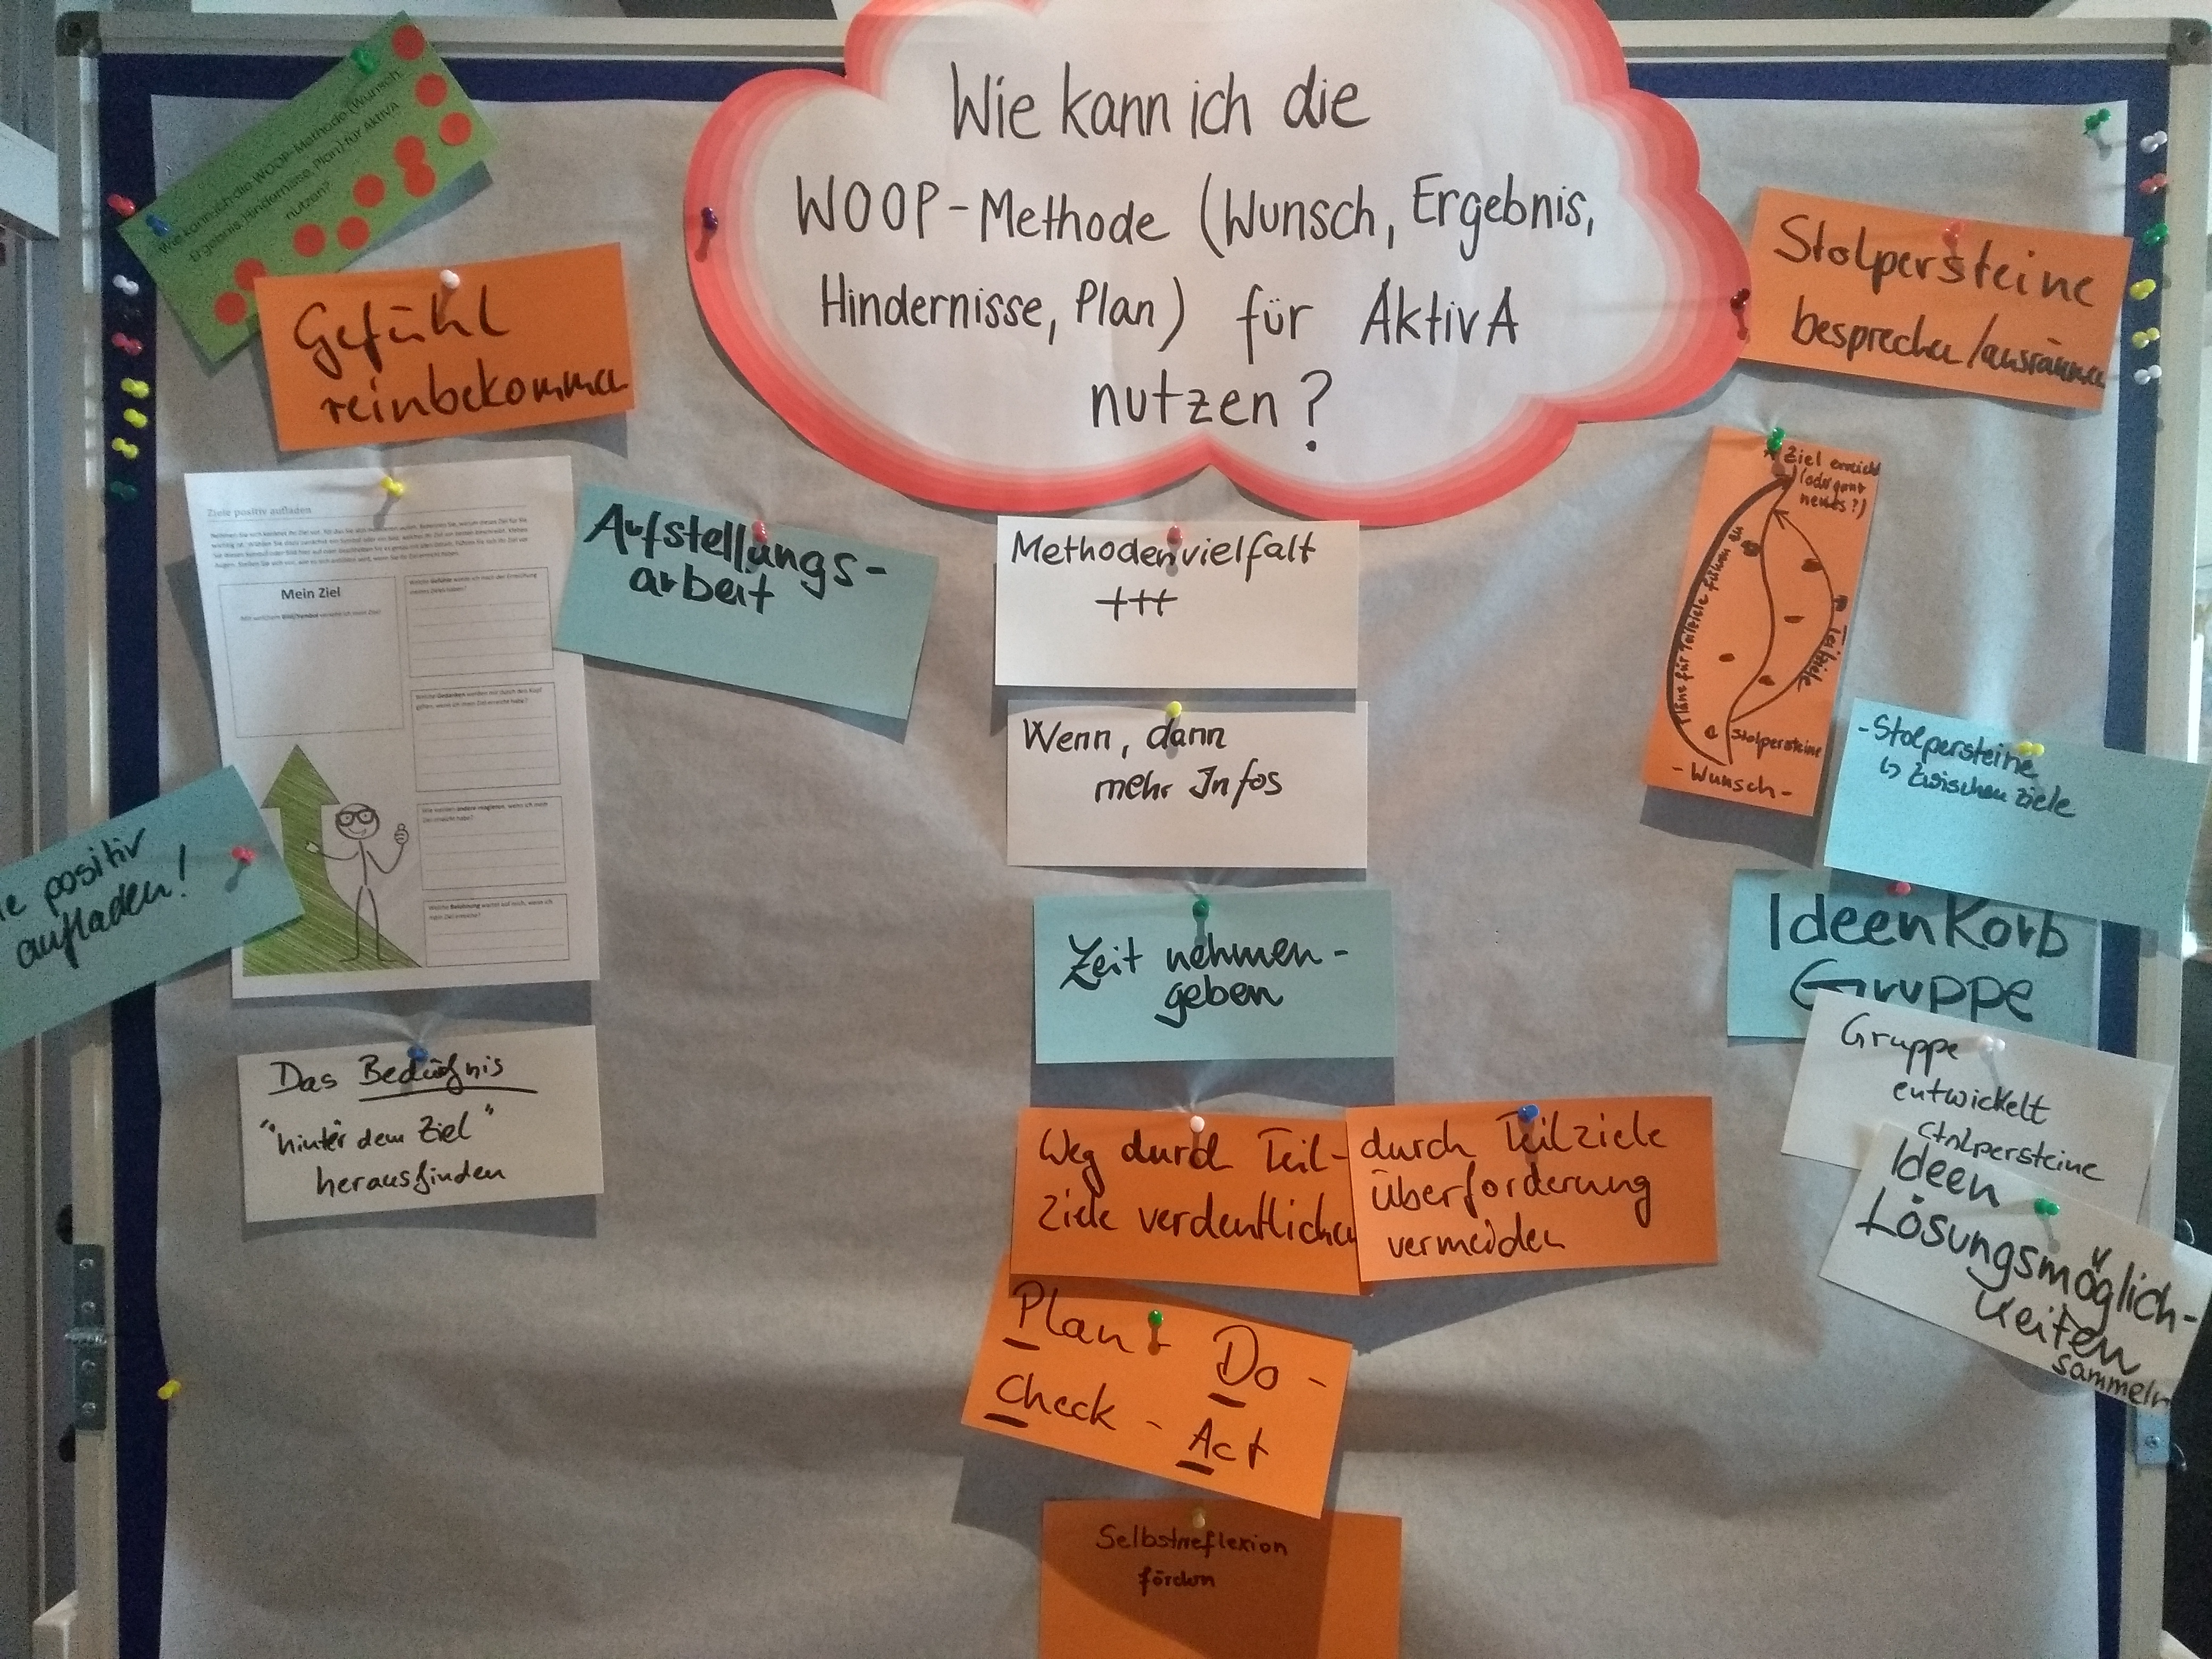 Wie kann ich die
WOOP-Methode (Wunsch, Ergebnis,
Hindernisse, Plan) für AktivA
nutzen?
Wie kann ich die WOOP-Methode (Wunsch,
Ergebnis, Hindernisse, Plan) für AktivA
nutzen?
Gefühl
reinbekommen
Ziele positiv aufladen
Mein Ziel
positiv
aufladen!
Das Bedürfnis
"hinter dem Ziel"
herausfinden
Aufstellungs-
arbeit
Methodenvielfalt
+++
Wenn, dann
mehr Infos
Zeit nehmen-
geben
Weg durch Teil-
Ziele verdeutlichen
durch Teilziele
Überforderung
vermeiden
Plan - Do -
Check - Act
Selbstreflexion
fördern
Stolpersteine
besprechen/ausräumen
Ziel erreicht
(oder ganz
neues?)
Pläne für Teilziele führen zu
Teilziele
Stolpersteine
- Wunsch -
- Stolpersteine
↳ Zwischenziele
IdeenKorb
Gruppe
Gruppe
entwickelt
Stolpersteine
Ideen
Lösungsmöglich-
keiten
sammeln